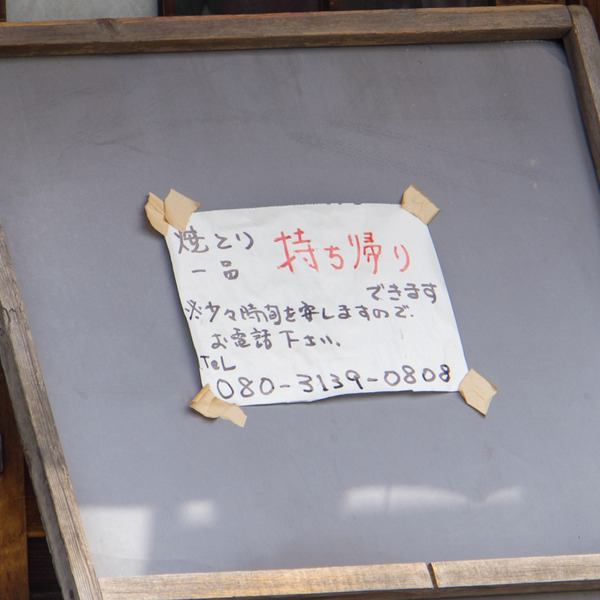 焼とり 持ち帰り
一品
できます
※少々時間を要しますので、
お電話下さい。
TeL
080-3139-0808